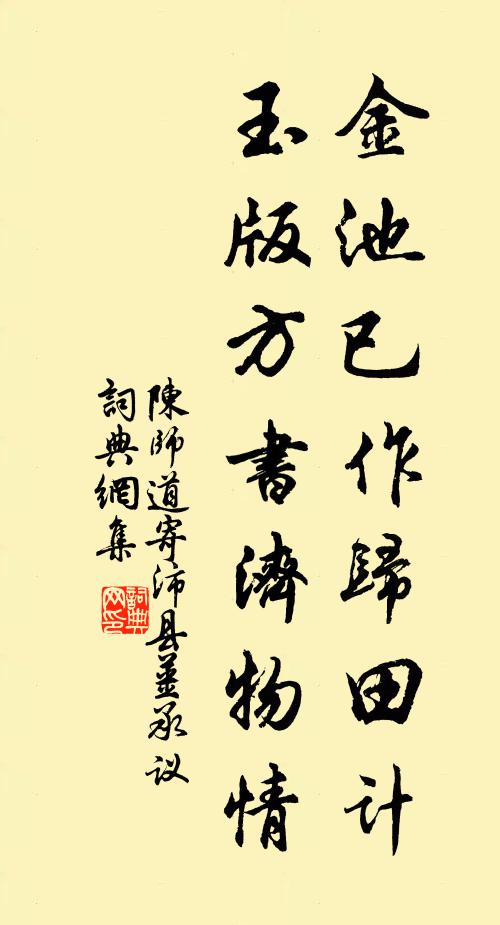 金池已作歸田計
玉版方書濟物情
陳師道寄沛县姜承议
詞典網集
詞典网印